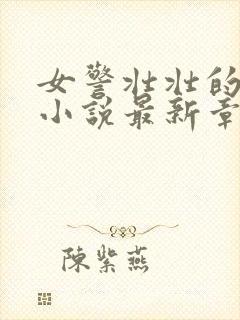 女警壮壮的
小说最新章
陳紫燕